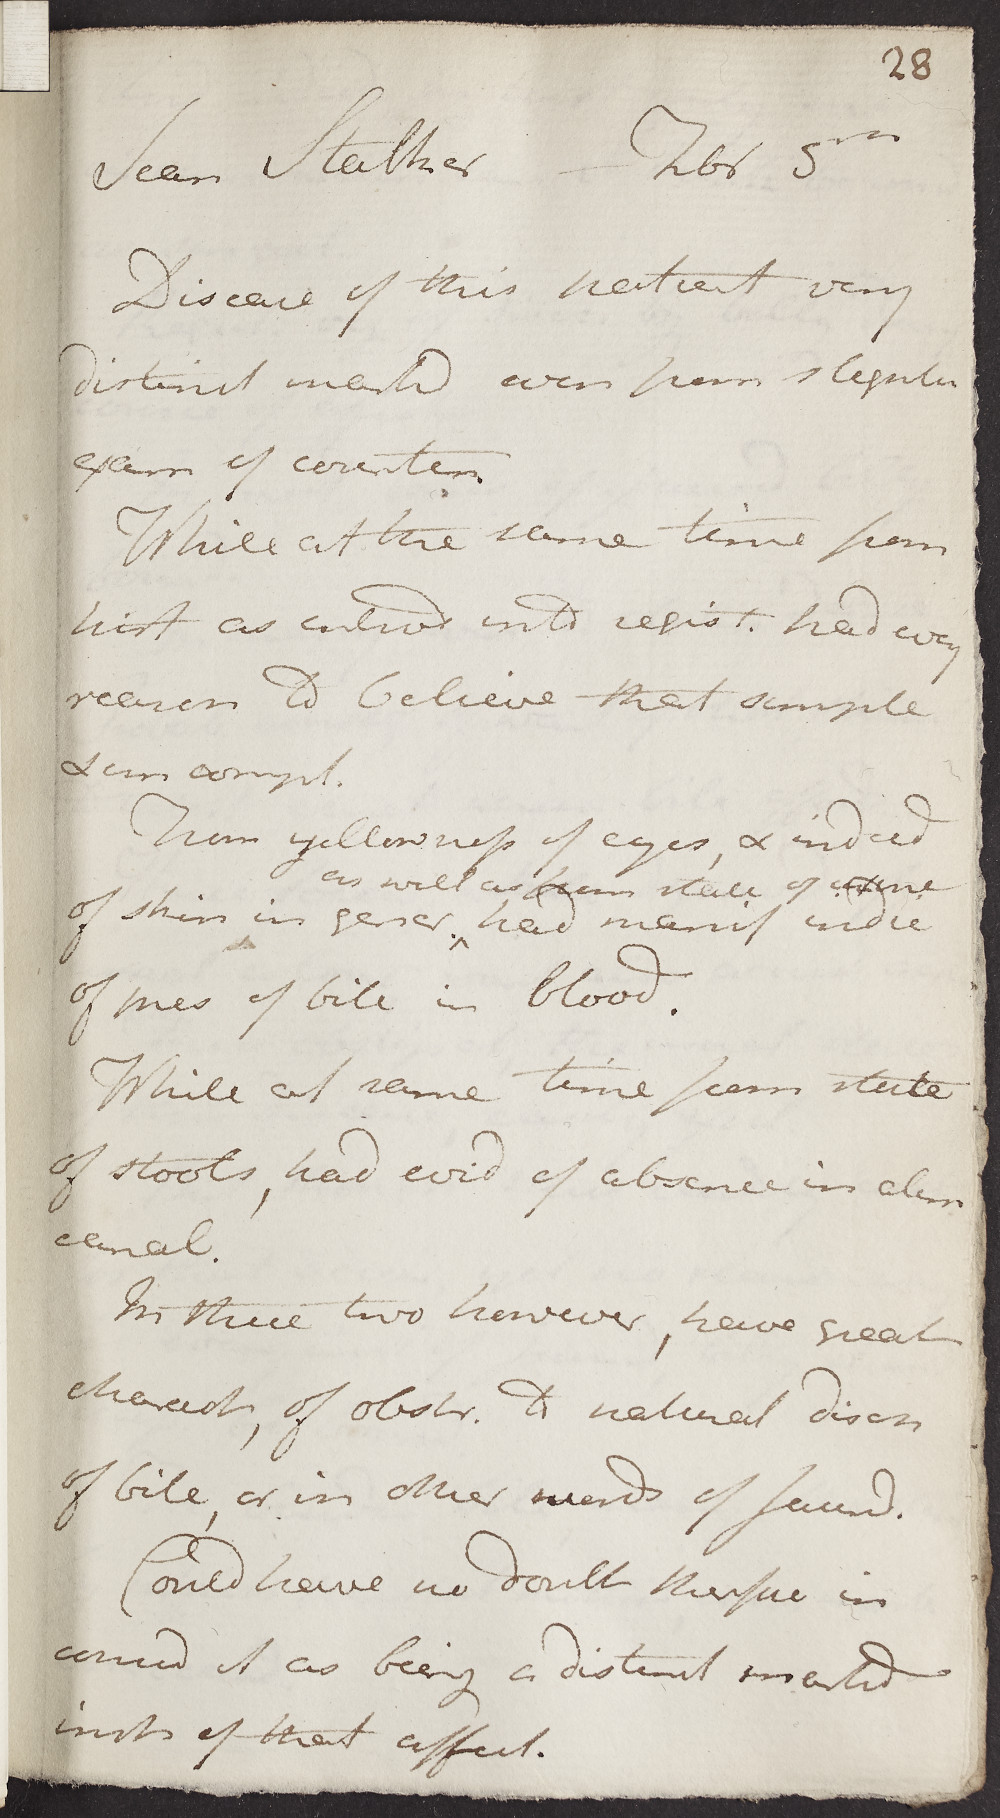 28
Jean Stalker Xbr 5
Disease of this patient very
distinct markd even from slightest
exam of counten.
While at the same time from
hist as entred into regist. had evry
reason to believe that simple
& uncompl.
From yellowness of eyes, & indeed
as well as from state of urine
of skin in gener. ^ had manif indic
of pres of bile in blood.
While at same time from state
of stools, had evid of absence in alim
canal.
In these two however, have great
characts, of obstr. to natural disch
of bile, or in other words of Jaund.
Could have no doubt therfore in
consid it as being a distinct markd
inst of that affect.